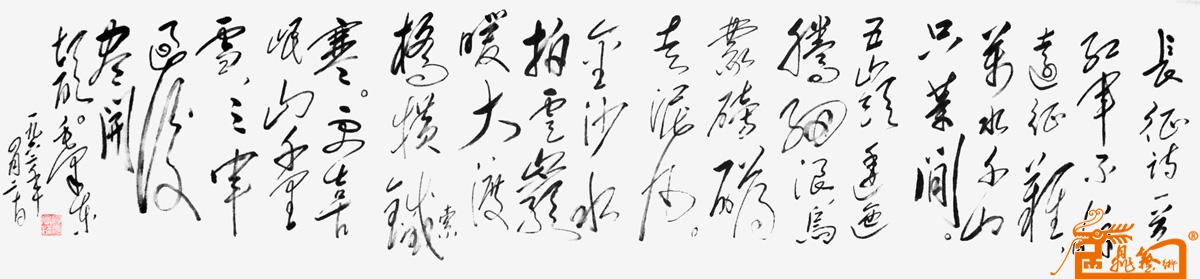 长征诗一首
红军不怕
远征难
万水千山
只等闲
五岭逶迤
腾细浪乌
蒙磅礴
走泥丸
金沙水
拍云崖
暖大渡
桥横铁索
寒更喜
岷山千里
雪三军
过后
尽开
颜毛泽东
一九六二年
四月二十日